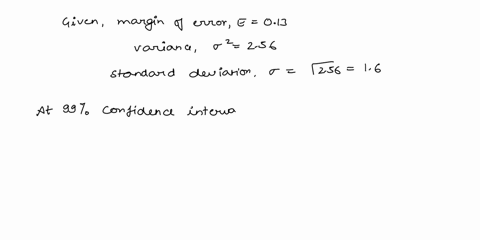 Given, margin of error, E = 0.13
variana, σ² = 2.56
standard deviation, σ = √2.56 = 1.6
At 99% Confidence interva